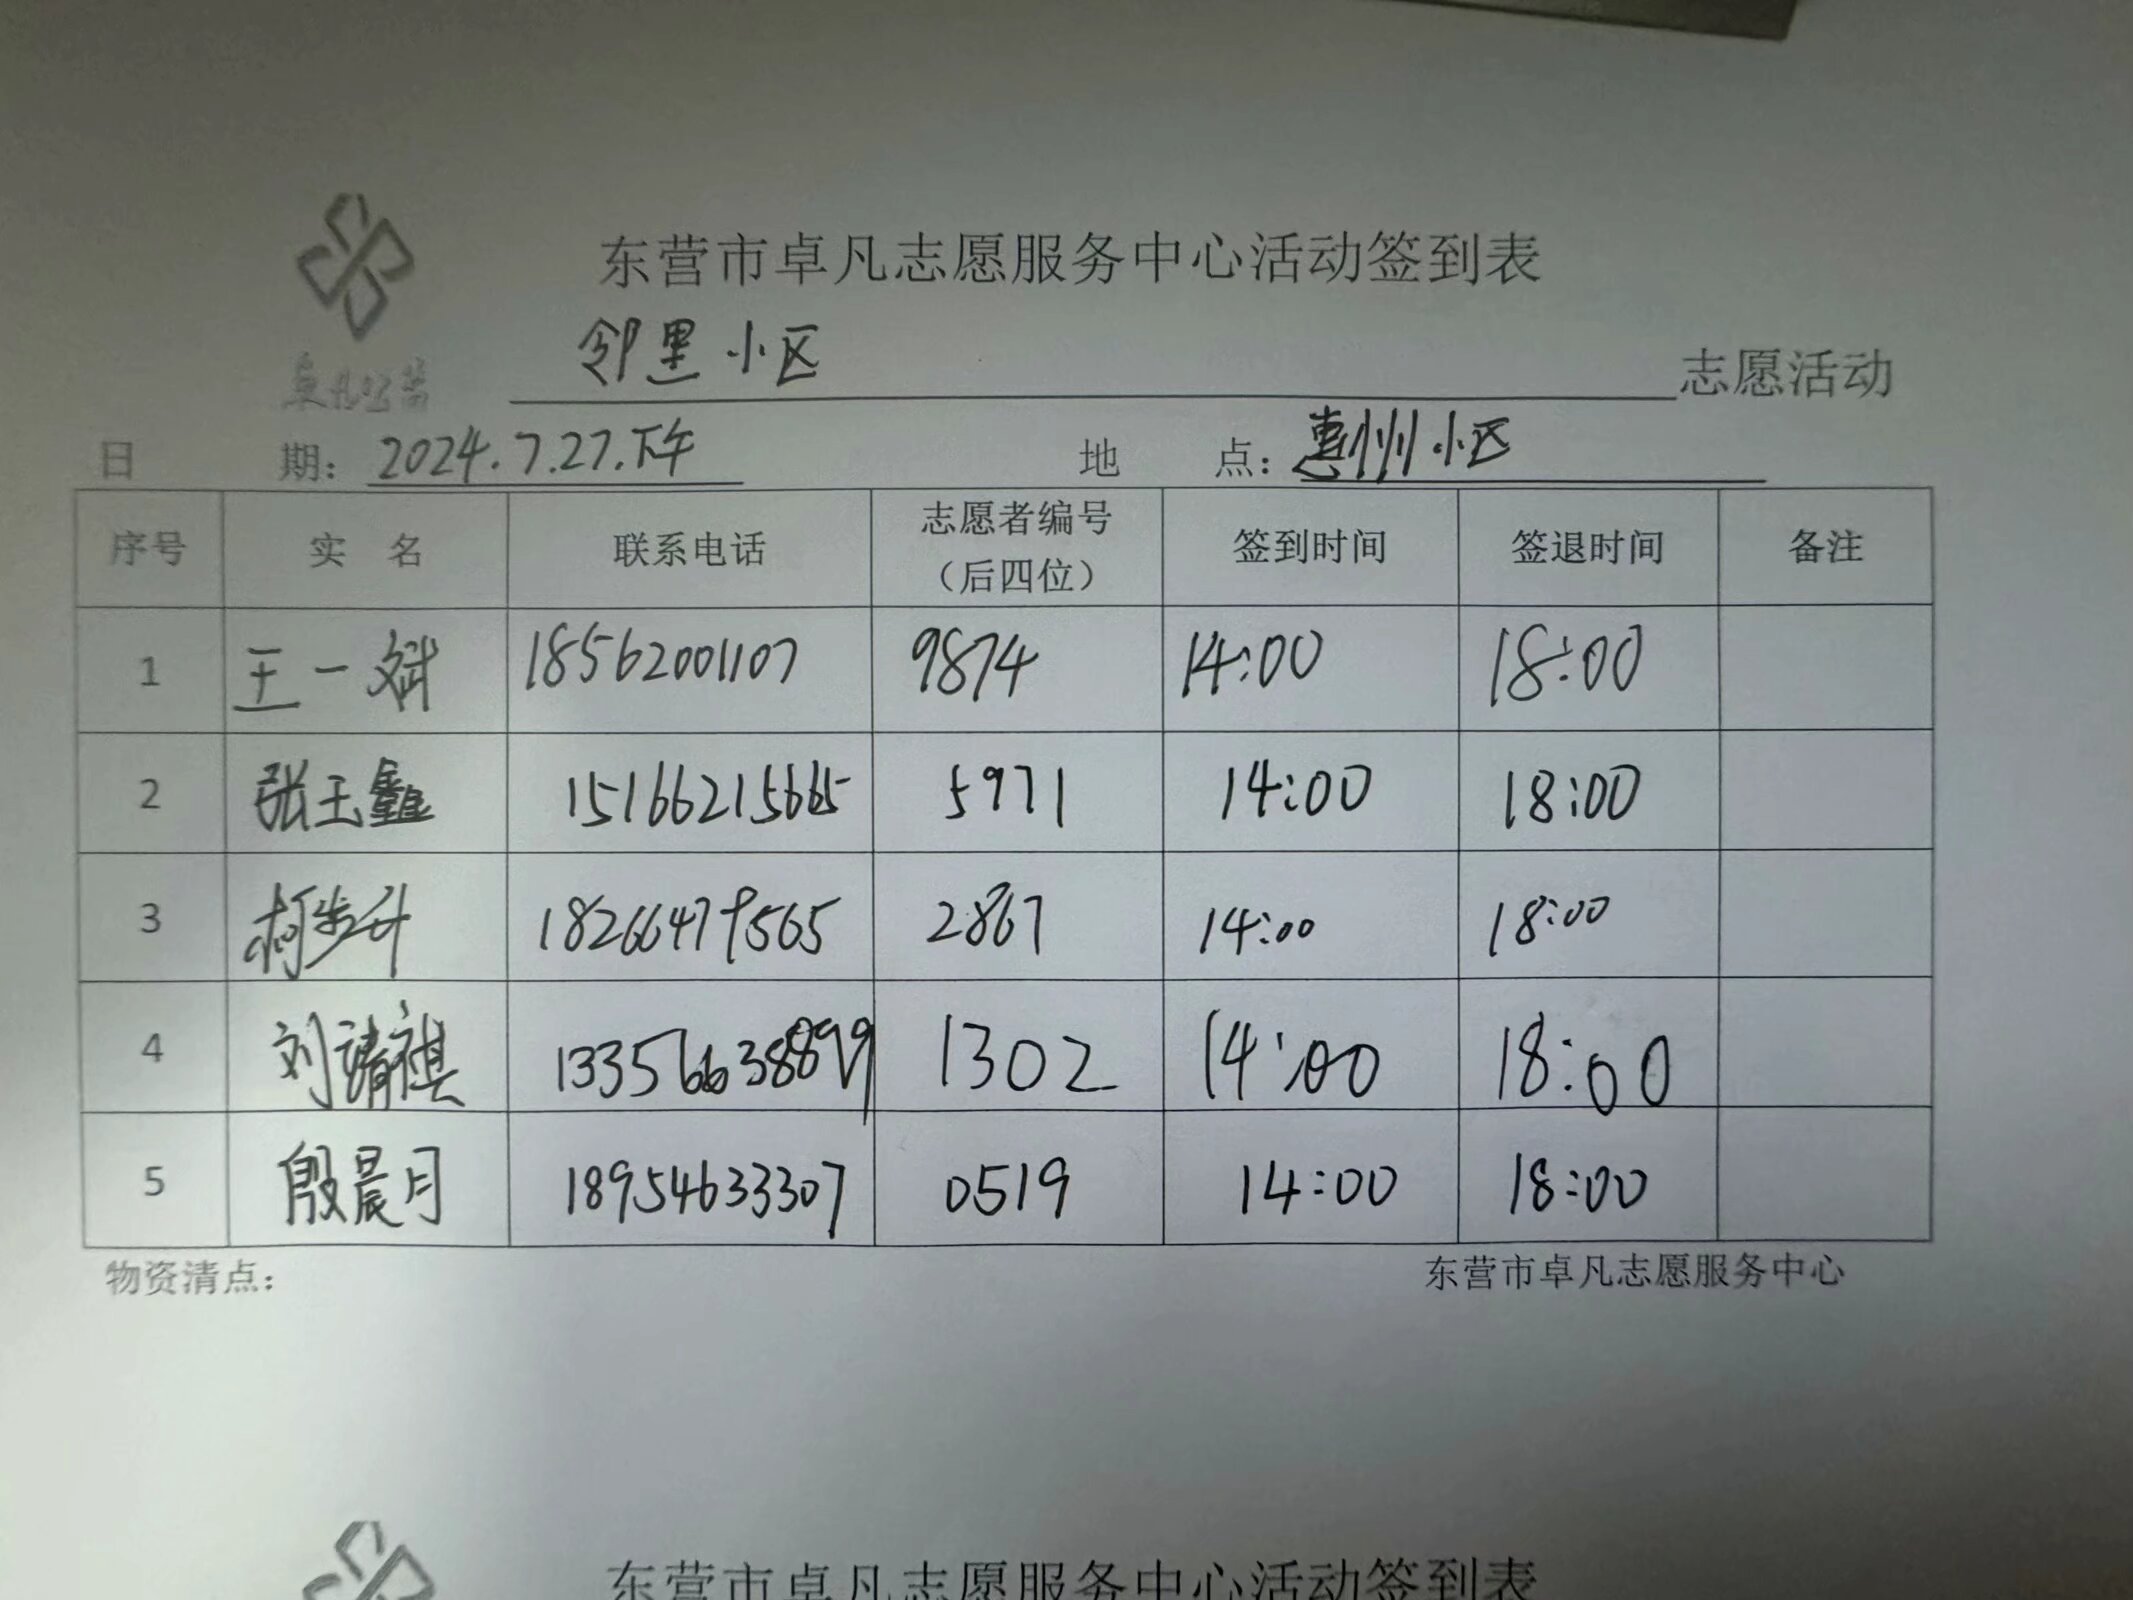 东营市卓凡志愿服务中心活动签到表
卓凡公益
邻里小区 志愿活动
日 期：2024.7.27.下午 地 点：惠州小区
序号 实 名 联系电话 志愿者编号（后四位） 签到时间 签退时间 备注
1 王一斌 18562001107 9874 14:00 18:00
2 张玉鑫 15166215665 5971 14:00 18:00
3 柯步升 18266479565 2867 14:00 18:00
4 刘靖祺 13356638899 1302 14:00 18:00
5 殷晨月 18954633307 0519 14:00 18:00
物资清点： 东营市卓凡志愿服务中心
东营市卓凡志愿服务中心活动签到表